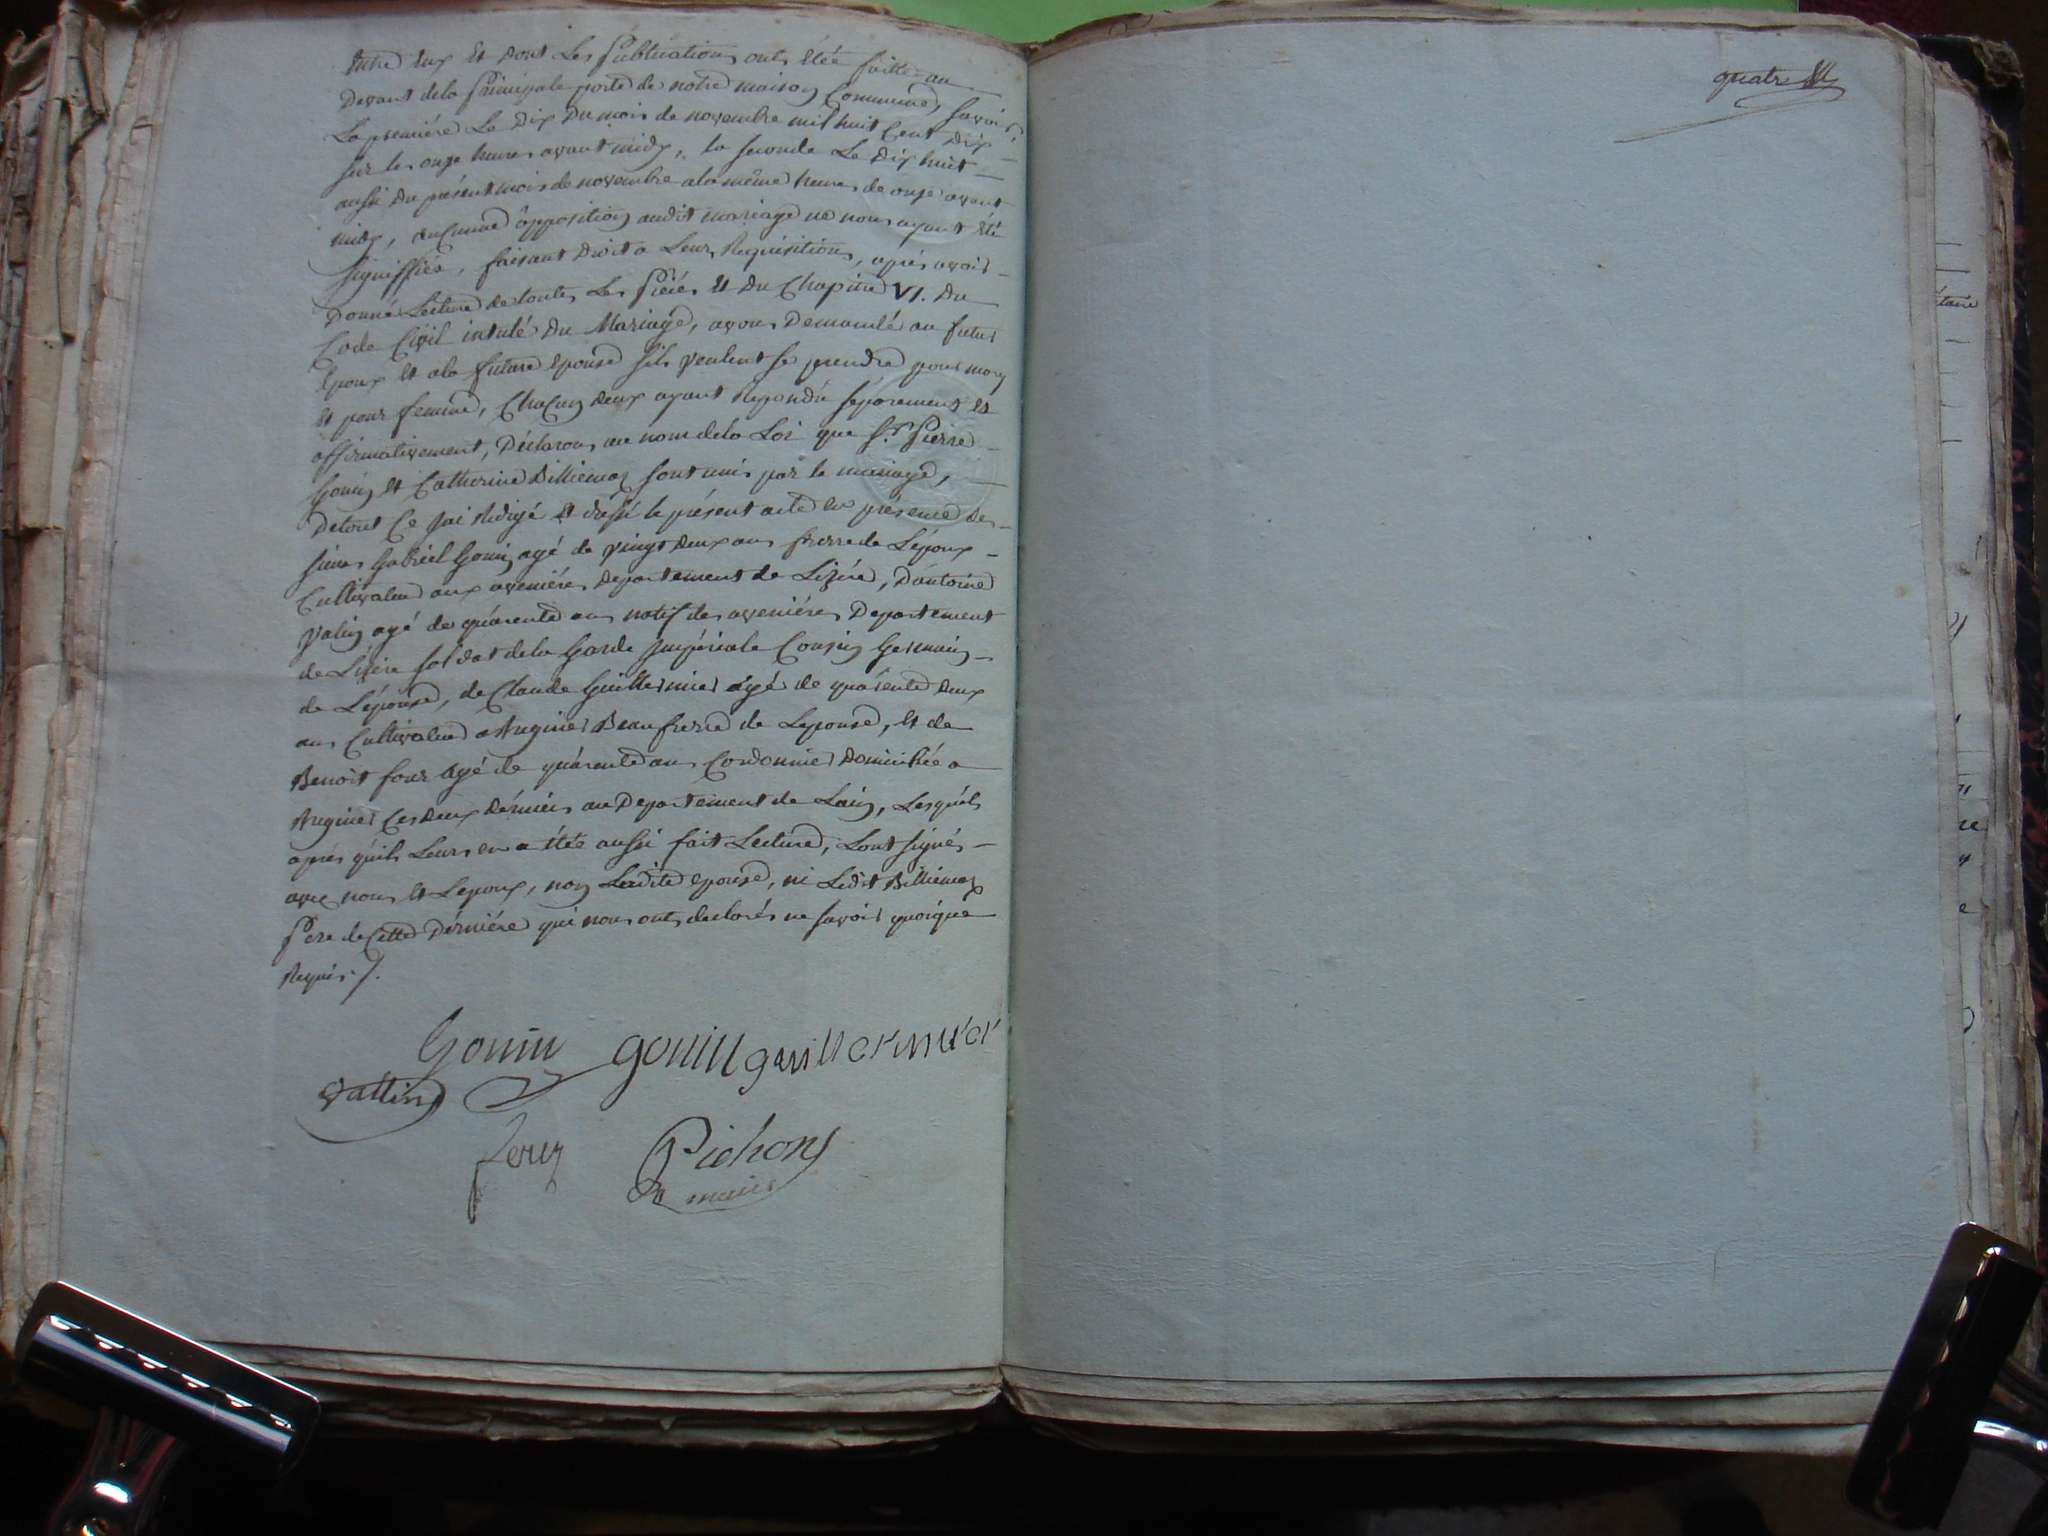 Entre Eux Et Dont Les Publications onts étée faitte au
Devant de la Principale porte de notre maison Commune, Savoir
La première Le Dix Du mois de novembre mil huit Cent Dix
Sur les onze heures avant midy, la seconde Le Dix huit
aussi Du présent mois de novembre a la même heures de onze avant
midy, aucunne ôpposition audit mariage ne nous ayant été
signiffiée, faisant Droit a Leurs Requisition, après avoir
Donné Lecture de toutes Les Pièces Et Du Chapitre VI. Du
Code Civil intulé Du Mariage, avons Demandé au futur
Epoux Et a la future epouse sils veulent se prendre pour mary
Et pour femme, Chacun deux ayant Repondu séparement Et
affirmativement, Déclarons au nom de la Loi que Sr. Pierre
Gonin Et Catherine Billiemaz sont unis par le mariage,
De tout Ce Jai Rédigé Et dressé le présent acte en présence des
sieurs Gabriel Gonin agé de vingt deux ans frerre de Lépoux
Cultivateur aux aveniéres Departement de Lizére, D'antoine
Valin agé de quarente ans natif des aveniéres Departement
de Lizére soldat de la Garde Impériale Cousin Germain
de Lépouse, de Claude Guillermier agé de quarente deux
ans Cultivateur a Anginer Beaufrerre de Lepouse, et de
Benoit four agé de quarente ans Cordonnier Domicilée a
Anginer Ces deux Derniers au Departement de Lain, Lesquels
après quils Leurs en a étée aussi fait Lecture, Lont signés
avec nous Et Lepoux, non Ladite epouse, ni Ledit Billiemaz
Pere de Cette Dérniére qui nous onts declarés ne savoir quoique
Requis ./.
Gonin gonin guillermier
Vallin
Pichon
maire
quatre